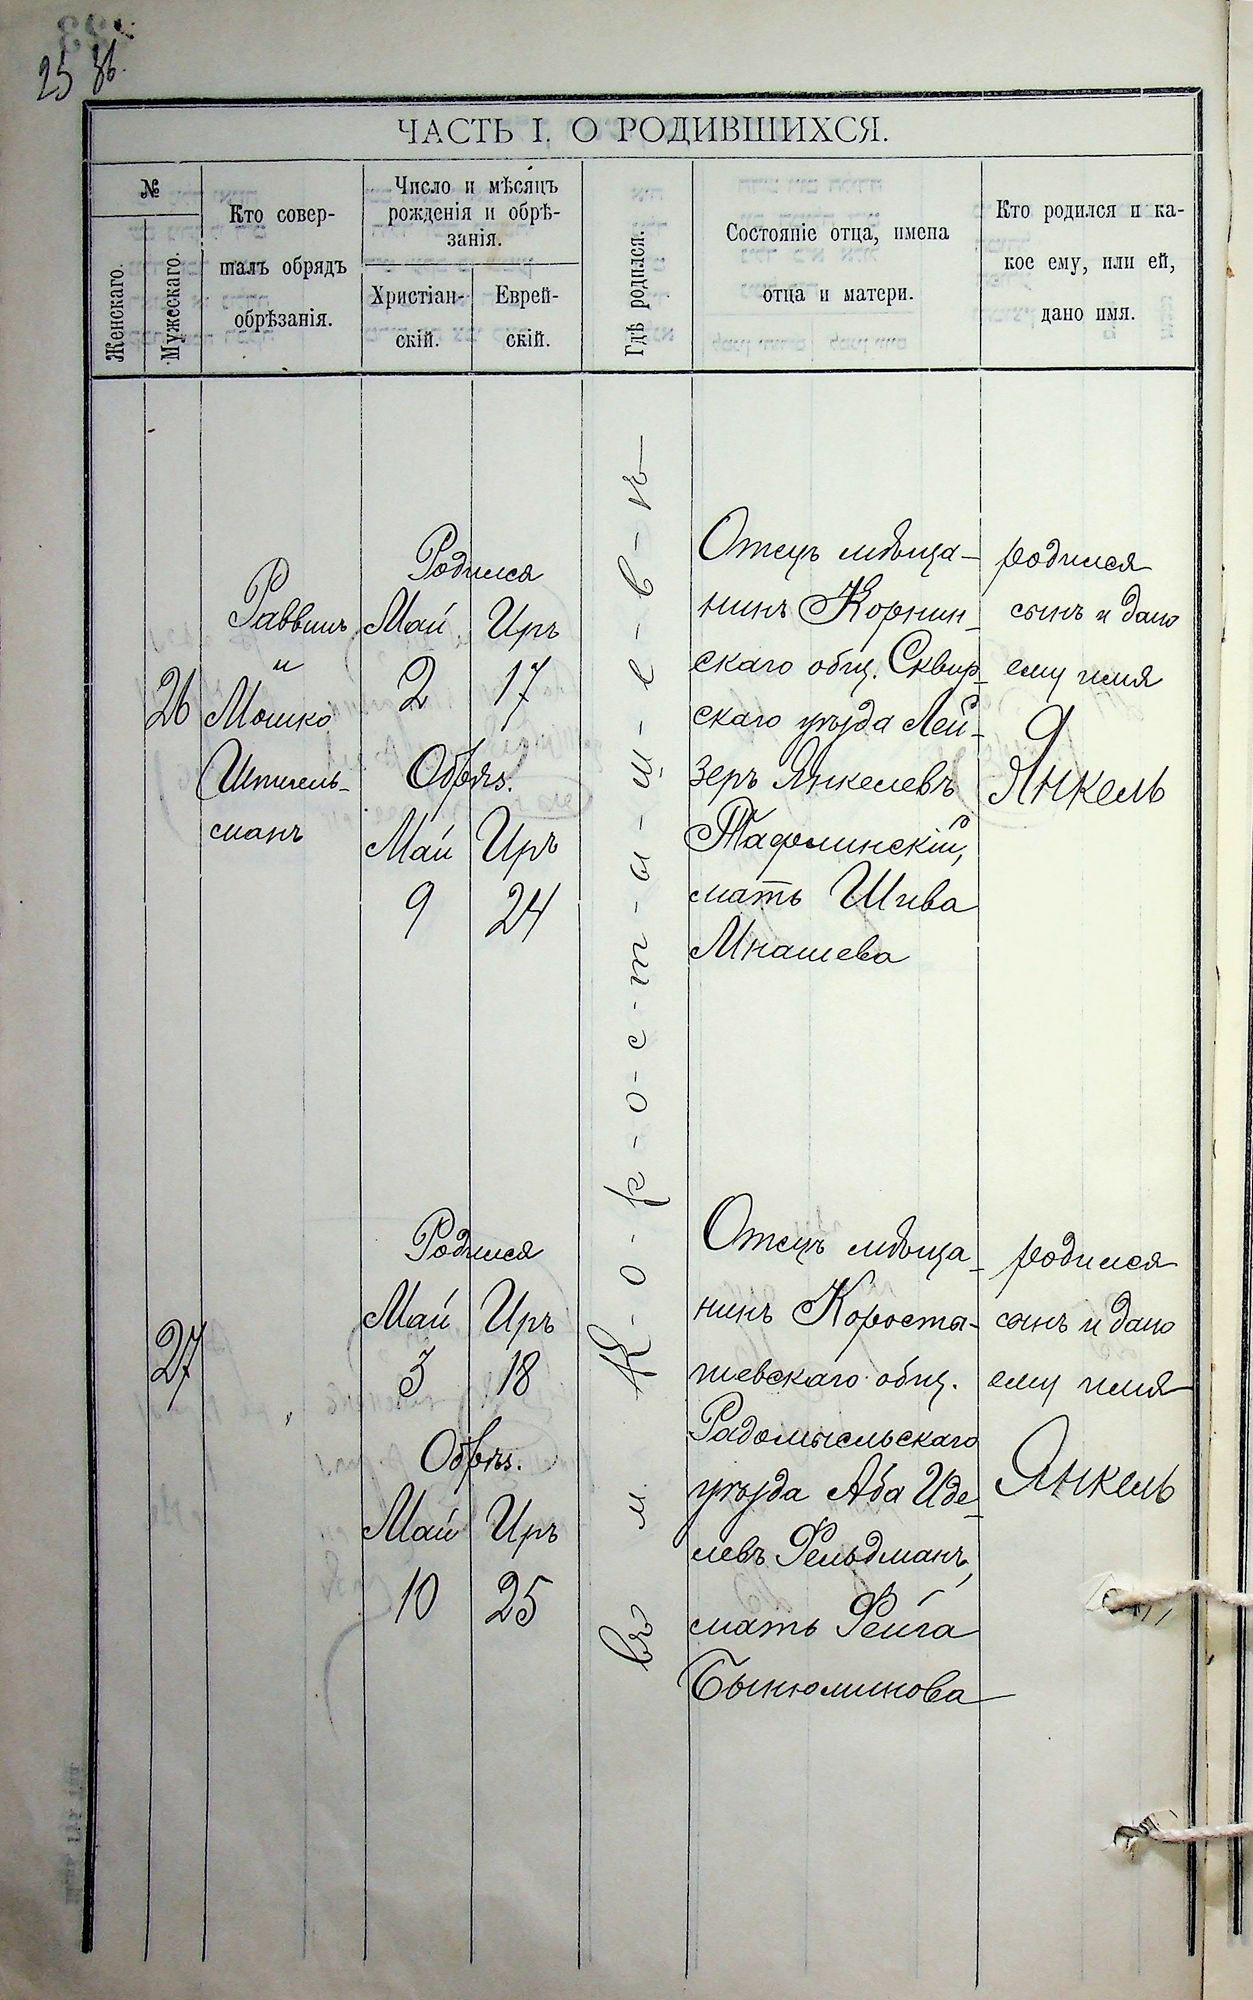 25 об.
ЧАСТЬ I. О РОДИВШИХСЯ.
№
Женскаго.
Мужескаго.
Кто совер-
шалъ обрядъ
обрѣзанія.
Число и мѣсяцъ
рожденія и обрѣ-
занія.
Христіан-
скій.
Еврей-
скій.
Гдѣ родился.
Состояніе отца, имена
отца и матери.
Кто родился и ка-
кое ему, или ей,
дано имя.
26
Раввинъ
и
Мошко
Шпигель-
манъ
Родился
Май Иръ
2 17
Обрѣз.
Май Иръ
9 24
въ м. К-о-р-о-с-т-ы-ш-е-в-ѣ
Отецъ мѣща-
нинъ Корнин-
скаго общ. Сквир-
скаго уѣзда Лей-
зеръ Янкелевъ
мать Шива
Мнашева
родился
сынъ и дано
ему имя
Янкель
27
"
Родился
Май Иръ
3 18
Обрѣз.
Май Иръ
10 25
Отецъ мѣща-
нинъ Коросты-
шевскаго общ.
Радомысльскаго
уѣзда Аба Иде-
левъ Фельдманъ,
мать Фейга
Бынюминова
родился
сынъ и дано
ему имя
Янкель